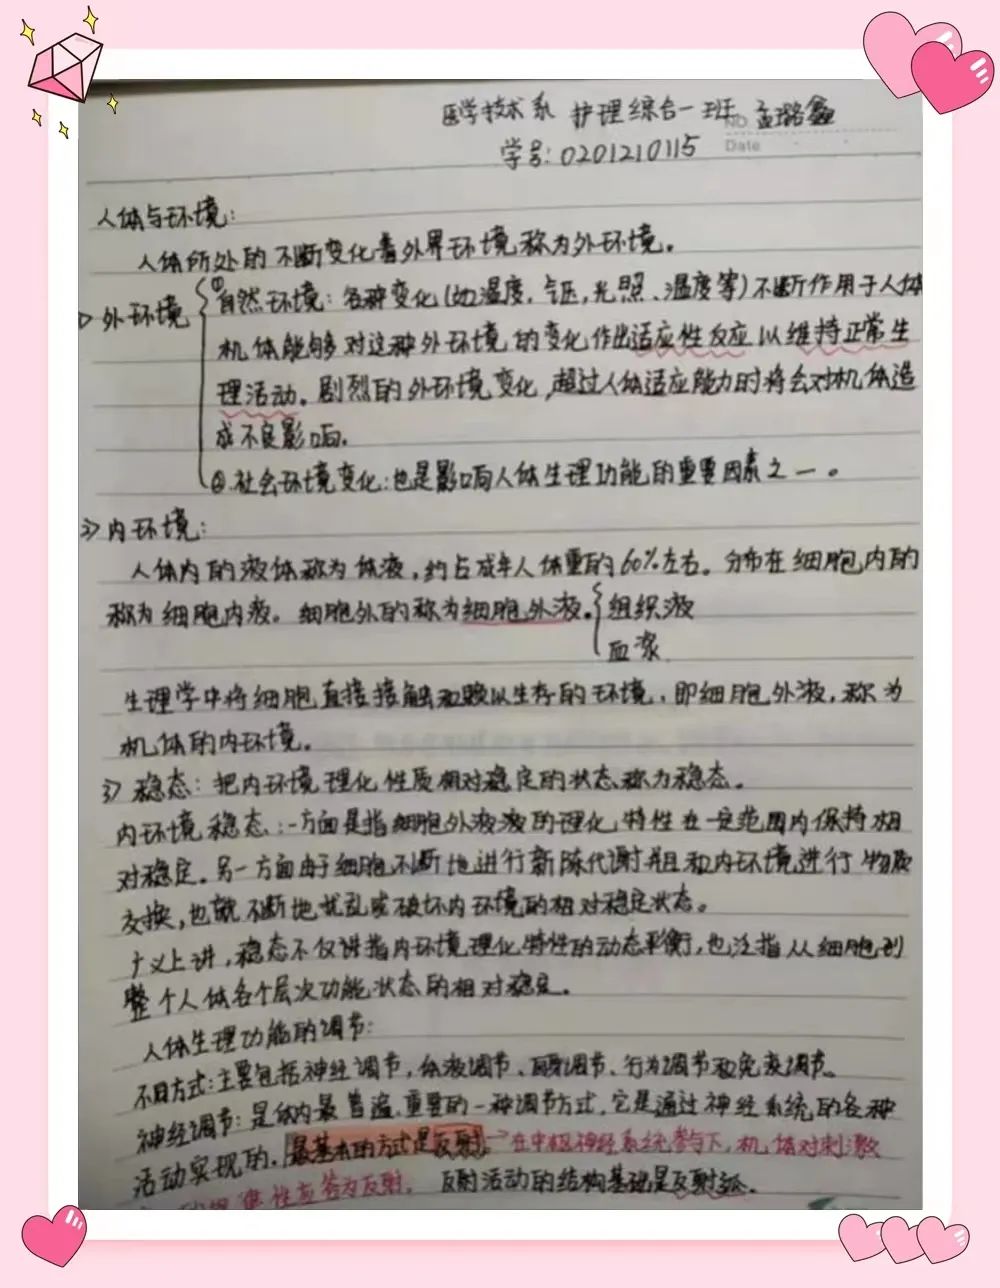 医学技术系 护理综合一班 孟璐鑫
No.
学号:0201210115
Date
人体与环境:
人体所处的不断变化着外界环境称为外环境。
外环境 ①自然环境:各种变化(如温度,气压,光照、湿度等)不断作用于人体
机体能够对这种外环境的变化作出适应性反应以维持正常生
理活动。剧烈的外环境变化,超过人体适应能力时将会对机体造
成不良影响。
②.社会环境变化:也是影响人体生理功能的重要因素之一。
2>内环境:
人体内的液体称为体液,约占成年人体重的60%左右。分布在细胞内的
称为细胞内液。细胞外的称为细胞外液。组织液
血浆
生理学中将细胞直接接触和赖以生存的环境,即细胞外液,称为
机体的内环境。
3>稳态:把内环境理化性质相对稳定的状态称为稳态。
内环境稳态:一方面是指细胞外液液的理化特性在一定范围内保持相
对稳定。另一方面由于细胞不断地进行新陈代谢并且和内环境进行物质
交换,也就不断地扰乱或破坏内环境的相对稳定状态。
广义上讲,稳态不仅讲指内环境理化特性的动态平衡,也泛指从细胞到
整个人体各个层次功能状态的相对稳定。
人体生理功能的调节:
不同方式:主要包括神经调节,体液调节、自身调节、行为调节和免疫调节。
神经调节:是体内最普遍.重要的一种调节方式.它是通过神经系统的各种
活动实现的.最基本的方式是反射.→在中枢神经系统参与下,机体对刺激
性应答为反射. 反射活动的结构基础是反射弧.